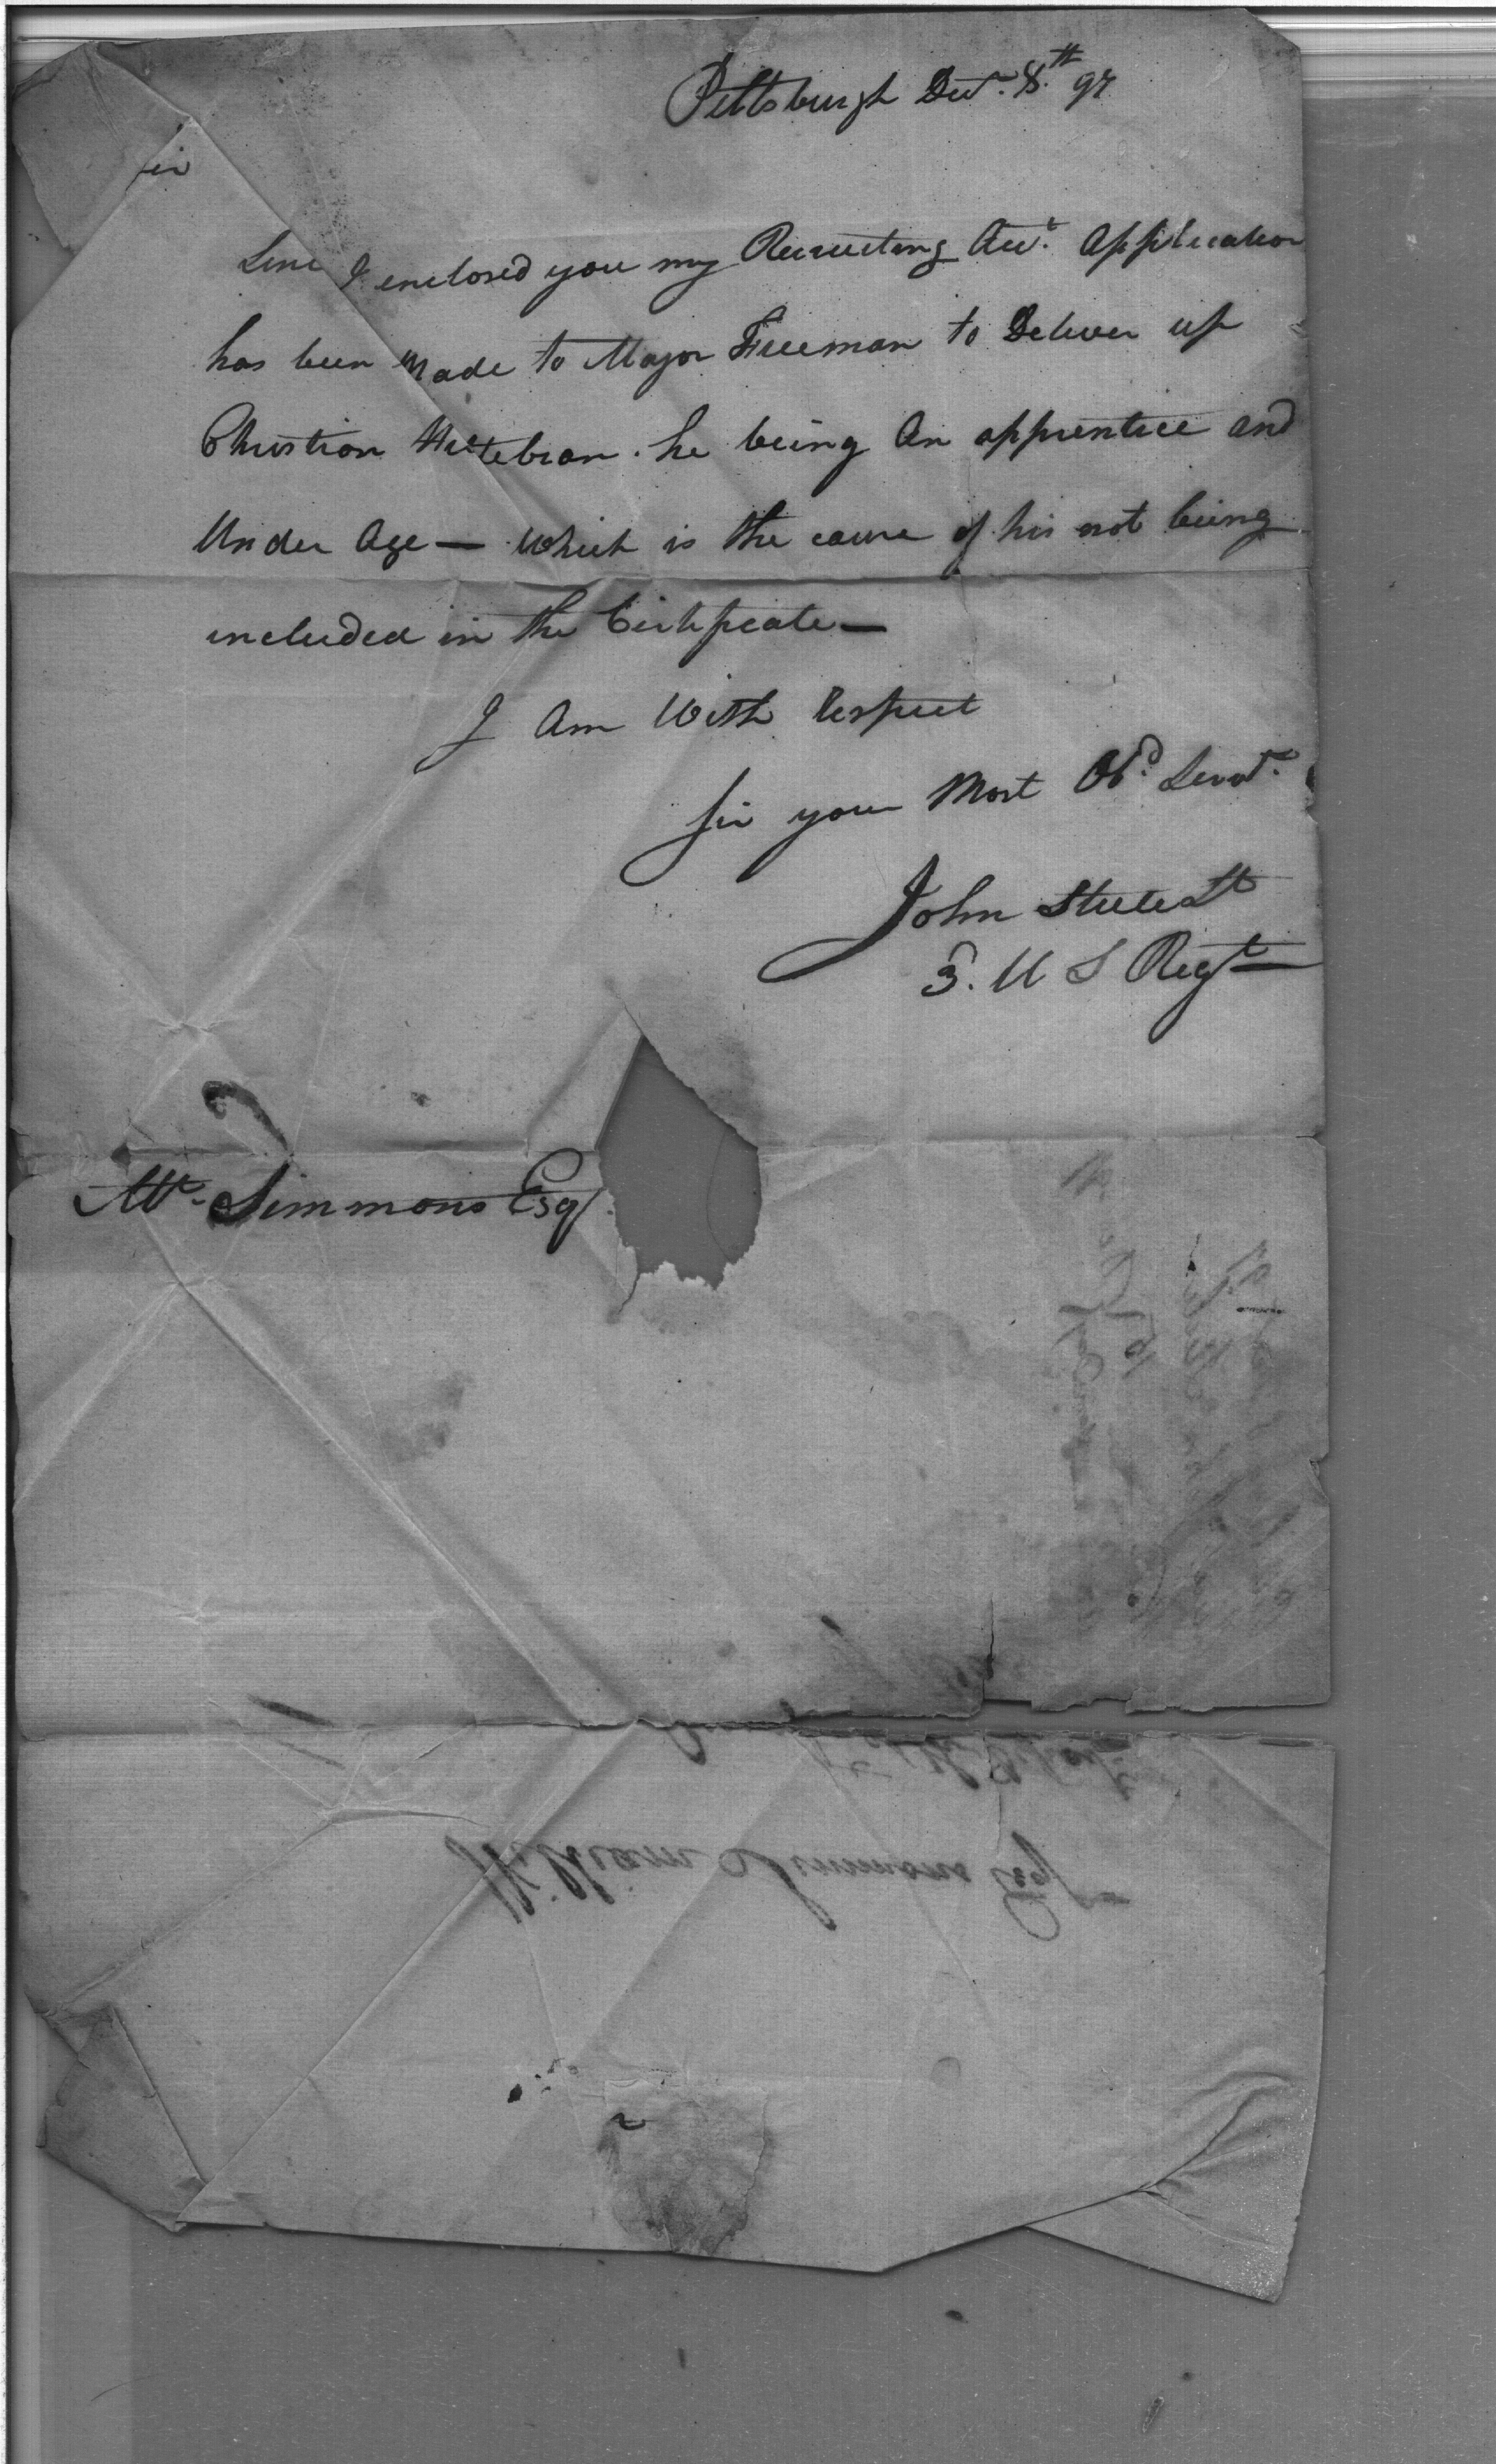 Pittsburgh Decr. 8.th 97
Sir
Since I enclosed you my Recruiting Acct. application
has been Made to Major Freeman to Deliver up
Christian he being An apprentice and
Under Age — which is the cause of his not being
included in the Certificate —
I Am With Respect
Sir your Most Obd. Servt.
John Steele Lt
3. U S Regt
Mr. Simmons Esqr
William Simmons Esqr